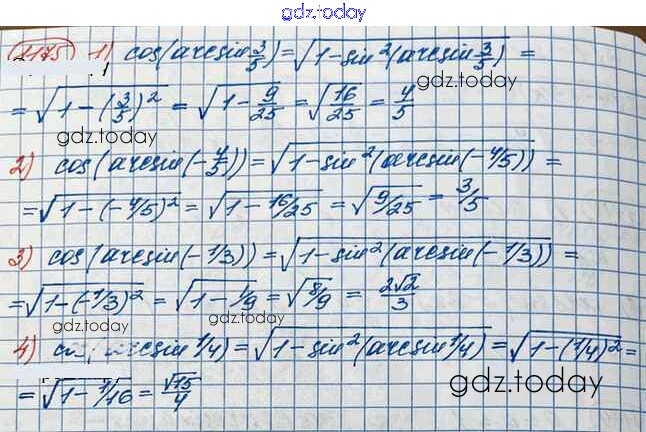 gdz.today
1175 1) cos(arcsin 3/5) = √(1-sin²(arcsin 3/5)) =
gdz.today
= √(1-(3/5)²) = √(1-9/25) = √(16/25) = 4/5
gdz.today
2) cos(arcsin(-4/5)) = √(1-sin²(arcsin(-4/5))) =
= √(1-(-4/5)²) = √(1-16/25) = √(9/25) = 3/5
3) cos(arcsin(-1/3)) = √(1-sin²(arcsin(-1/3))) =
= √(1-(-1/3)²) = √(1-1/9) = √(8/9) = 2√2/3
gdz.today gdz.today
4) arcsin 1/4) = √(1-sin²(arcsin 1/4)) = √(1-(1/4)²) =
= √(1-1/16) = √15/4
gdz.today